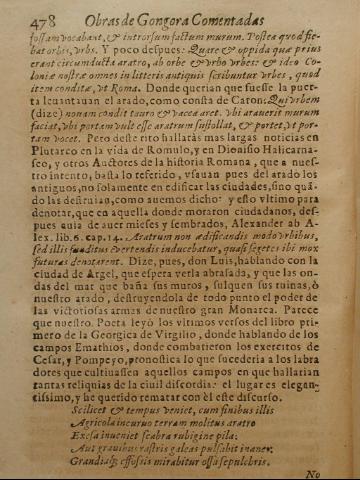 478 Obras de Gongora Comentadas
fossam vocabant, & introrsum factum murum. Postea quod fie-
bat orbis, vrbs. Y poco despues: Quare & oppida quæ prius
erant circunducta aratro, ab orbe & vrbo vrbes: & ideo Co-
loniæ nostræ omnes in litteris antiquis scribuntur vrbes, quod
item conditæ, vt Roma. Donde querian que fuesse la puer-
ta leuantauan el arado, como consta de Caton: Qui vrbem
(dize) nouam condit tauro & vacca aret. vbi arauerit murum
faciat, vbi portam vult esse aratrum sustollat, & portet, vt por-
tam vocet. Pero deste rito hallaràs mas largas noticias en
Plutarco en la vida de Romulo, y en Dionisio Halicarna-
seo, y otros Auctores de la historia Romana, que a nues-
tro intento, basta lo referido, vsauan pues del arado los
antiguos, no solamente en edificar las ciudades, sino quã-
do las destruian, como auemos dicho: y esto vltimo para
denotar, que en aquella donde moraron ciudadanos, des-
pues auia de auer mieses y sembrados. Alexander ab A-
lex. lib. 6. cap. 14. Aratrum non ædificandis modò vrbibus,
sed illis funditus euertendis inducebatur, quasi segetes ibi mox
futuras denotarent. Dize, pues, don Luis, hablando con la
ciudad de Argel, que espera verla abrasada, y que las on-
das del mar que baña sus muros, sulquen sus ruinas, ò
nuestro arado, destruyendola de todo punto el poder de
las victoriosas armas de nuestro gran Monarca. Parece
que nuestro Poeta leyò los vltimos versos del libro pri-
mero de la Georgica de Virgilio, donde hablando de los
campos Emathios, donde combatieron los exercitos de
Cesar, y Pompeyo, pronostica lo que sucederia a los labra
dores que cultiuassen aquellos campos en que hallarian
tantas reliquias de la ciuil discordia: el lugar es elegan-
tissimo, y he querido rematar con èl este discurso.
Scilicet & tempus veniet, cum finibus illis
Agricola incuruo terram molitus aratro
Exesa inueniet scabra rubigine pila:
Aut grauibus rastris galeas pulsabit inanes,
Grandiaq; effossis mirabitur ossa sepulcris.
No